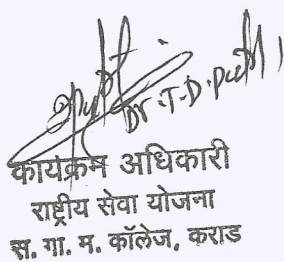 Dr. T. D.
कार्यक्रम अधिकारी
राष्ट्रीय सेवा योजना
स. गा. म. कॉलेज, कराड